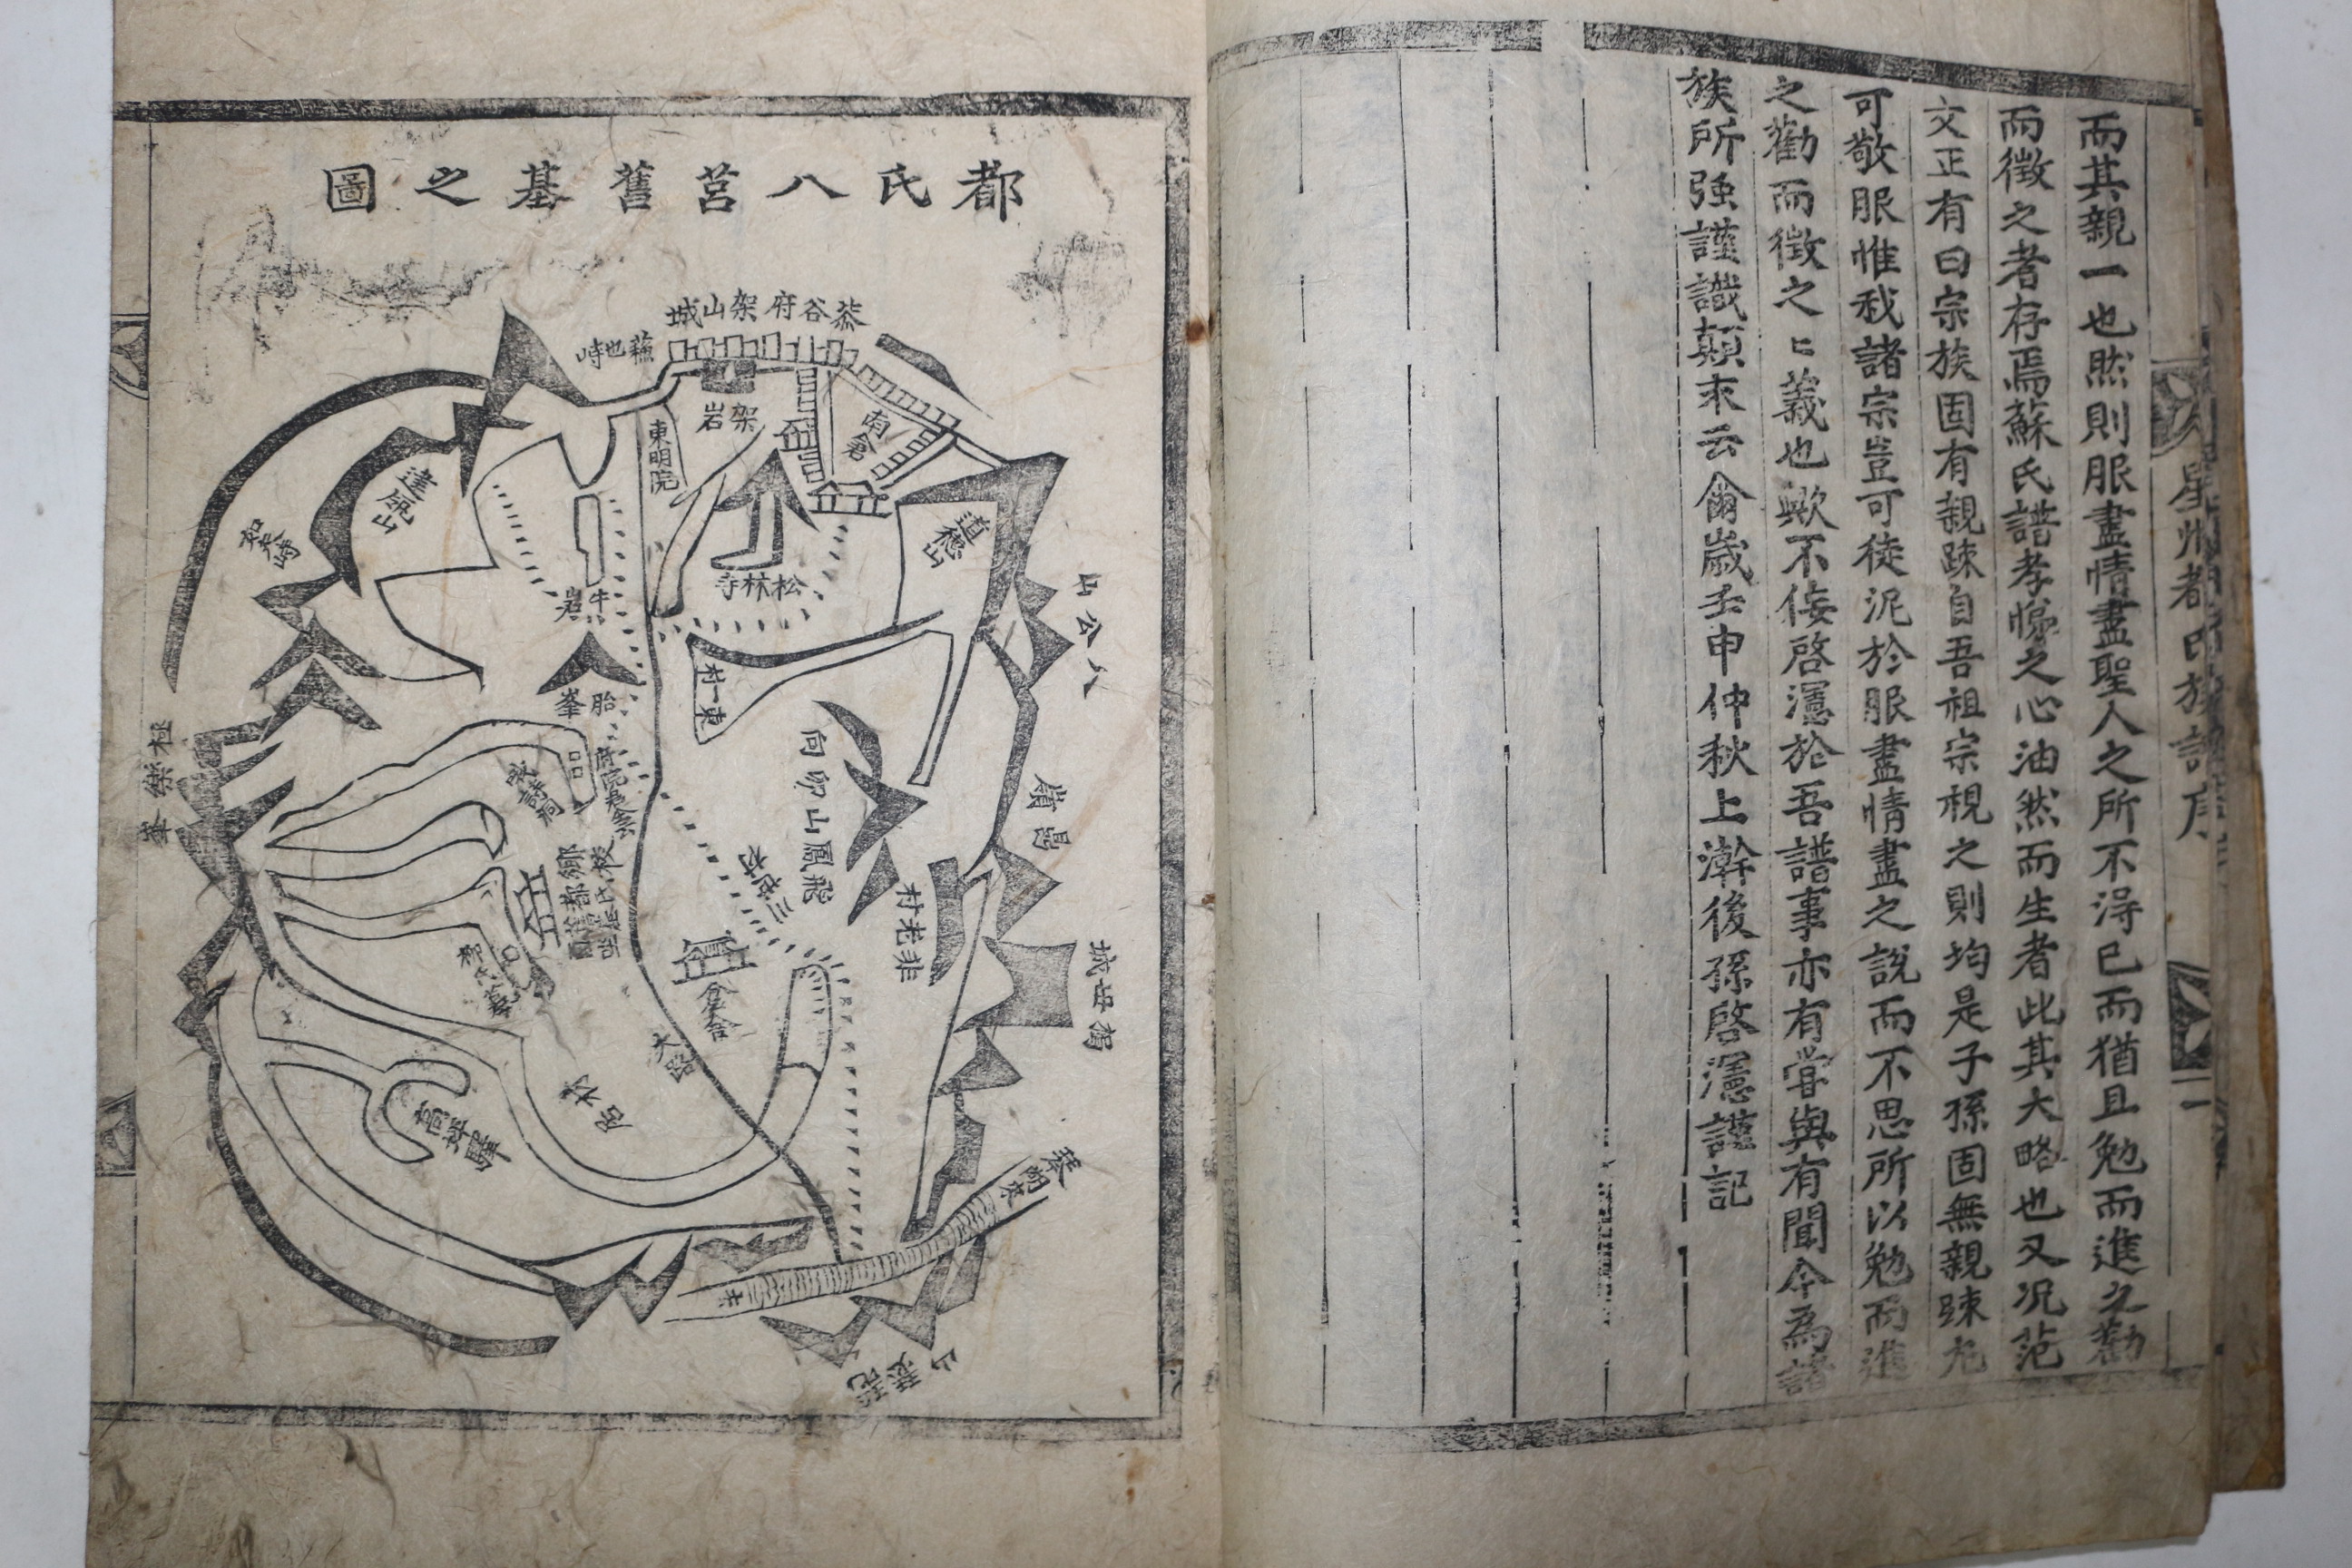 而其親一也然則服盡情盡聖人之所不淂已而猶且勉而進之勸
而徵之者存焉蘇氏譜孝悌之心油然而生者此其大略也又况范
文正有曰宗族固有親踈自吾祖宗視之則均是子孫固無親踈九
可敬服惟我諸宗豈可徒泥於服盡情盡之說而不思所以勉而進
之勸而徵之〻義也歟不侫啓濦於吾譜事亦有甞與有聞今為諸
族所强謹識顚末云爾歲壬申仲秋上澣後孫啓濦謹記
星州都氏族譜序
二
都氏八莒舊基之圖
柒谷府架山城
蘓也峙
架岩
東明院
南倉
建瓴山
道德山
松林寺
牛岩
八公山
東一村
胎峯
向卯山鳳飛
極樂峯
鄕校
都氏舊基
三世村
非老村
倉舍
大路
高坪驛
琴湖
山